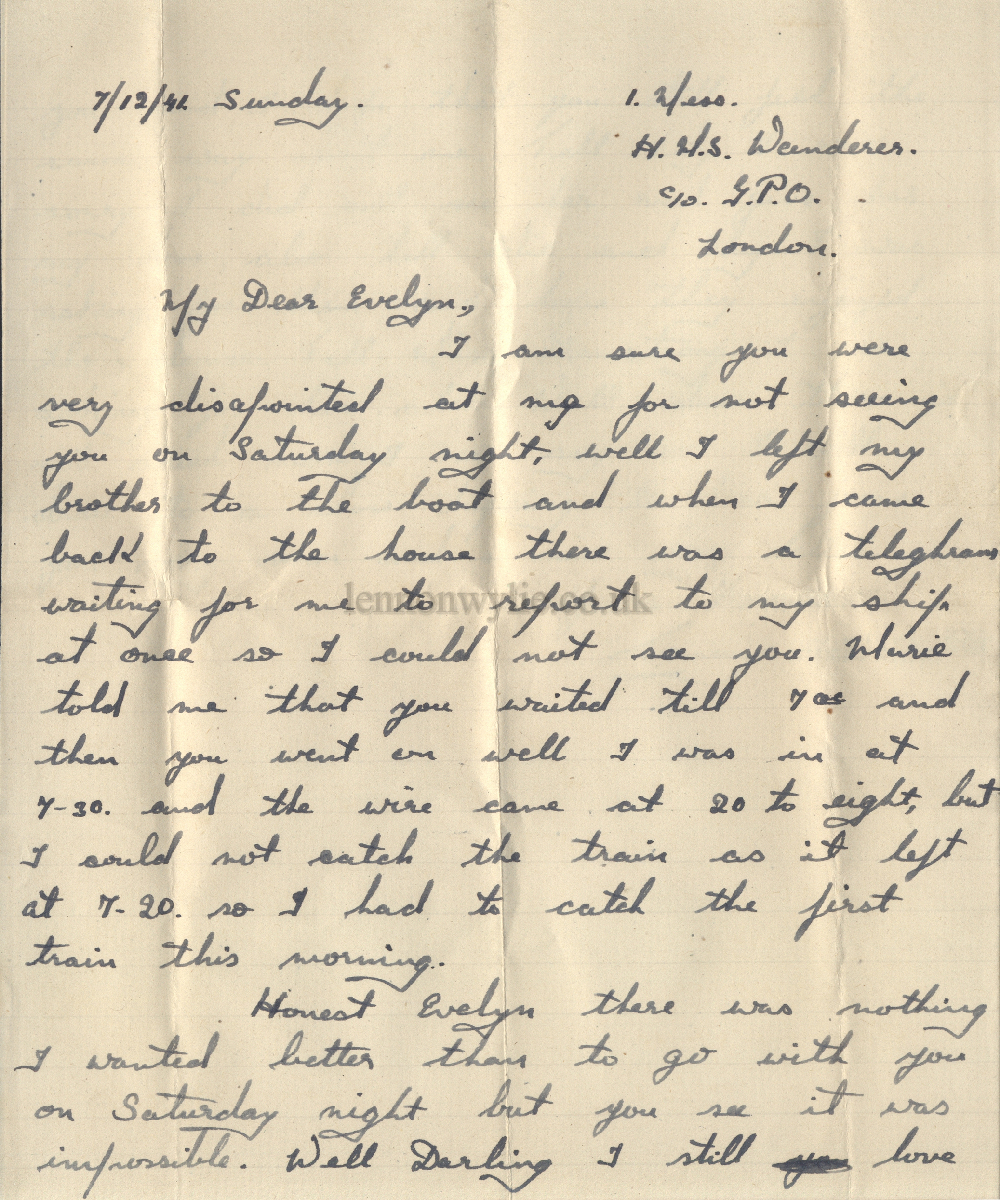 7/12/41 Sunday.
1. Mess.
H.M.S. Wanderer.
c/o. G.P.O.
London.
My Dear Evelyn.,
I am sure you were
very disapointed at me for not seeing
you on Saturday night, well I left my
brother to the boat and when I came
back to the house there was a teleghram
waiting for me to report to my ship
lemonwylie.co.uk
at once so I could not see you. Murie
told me that you waited till 7 and
then you went on well I was in at
7-30. and the wire came at 20 to eight, but
I could not catch the train as it left
at 7-20. so I had to catch the first
train this morning.
Honest Evelyn there was nothing
I wanted better than to go with you
on Saturday night but you see it was
impossible. Well Darling I still love